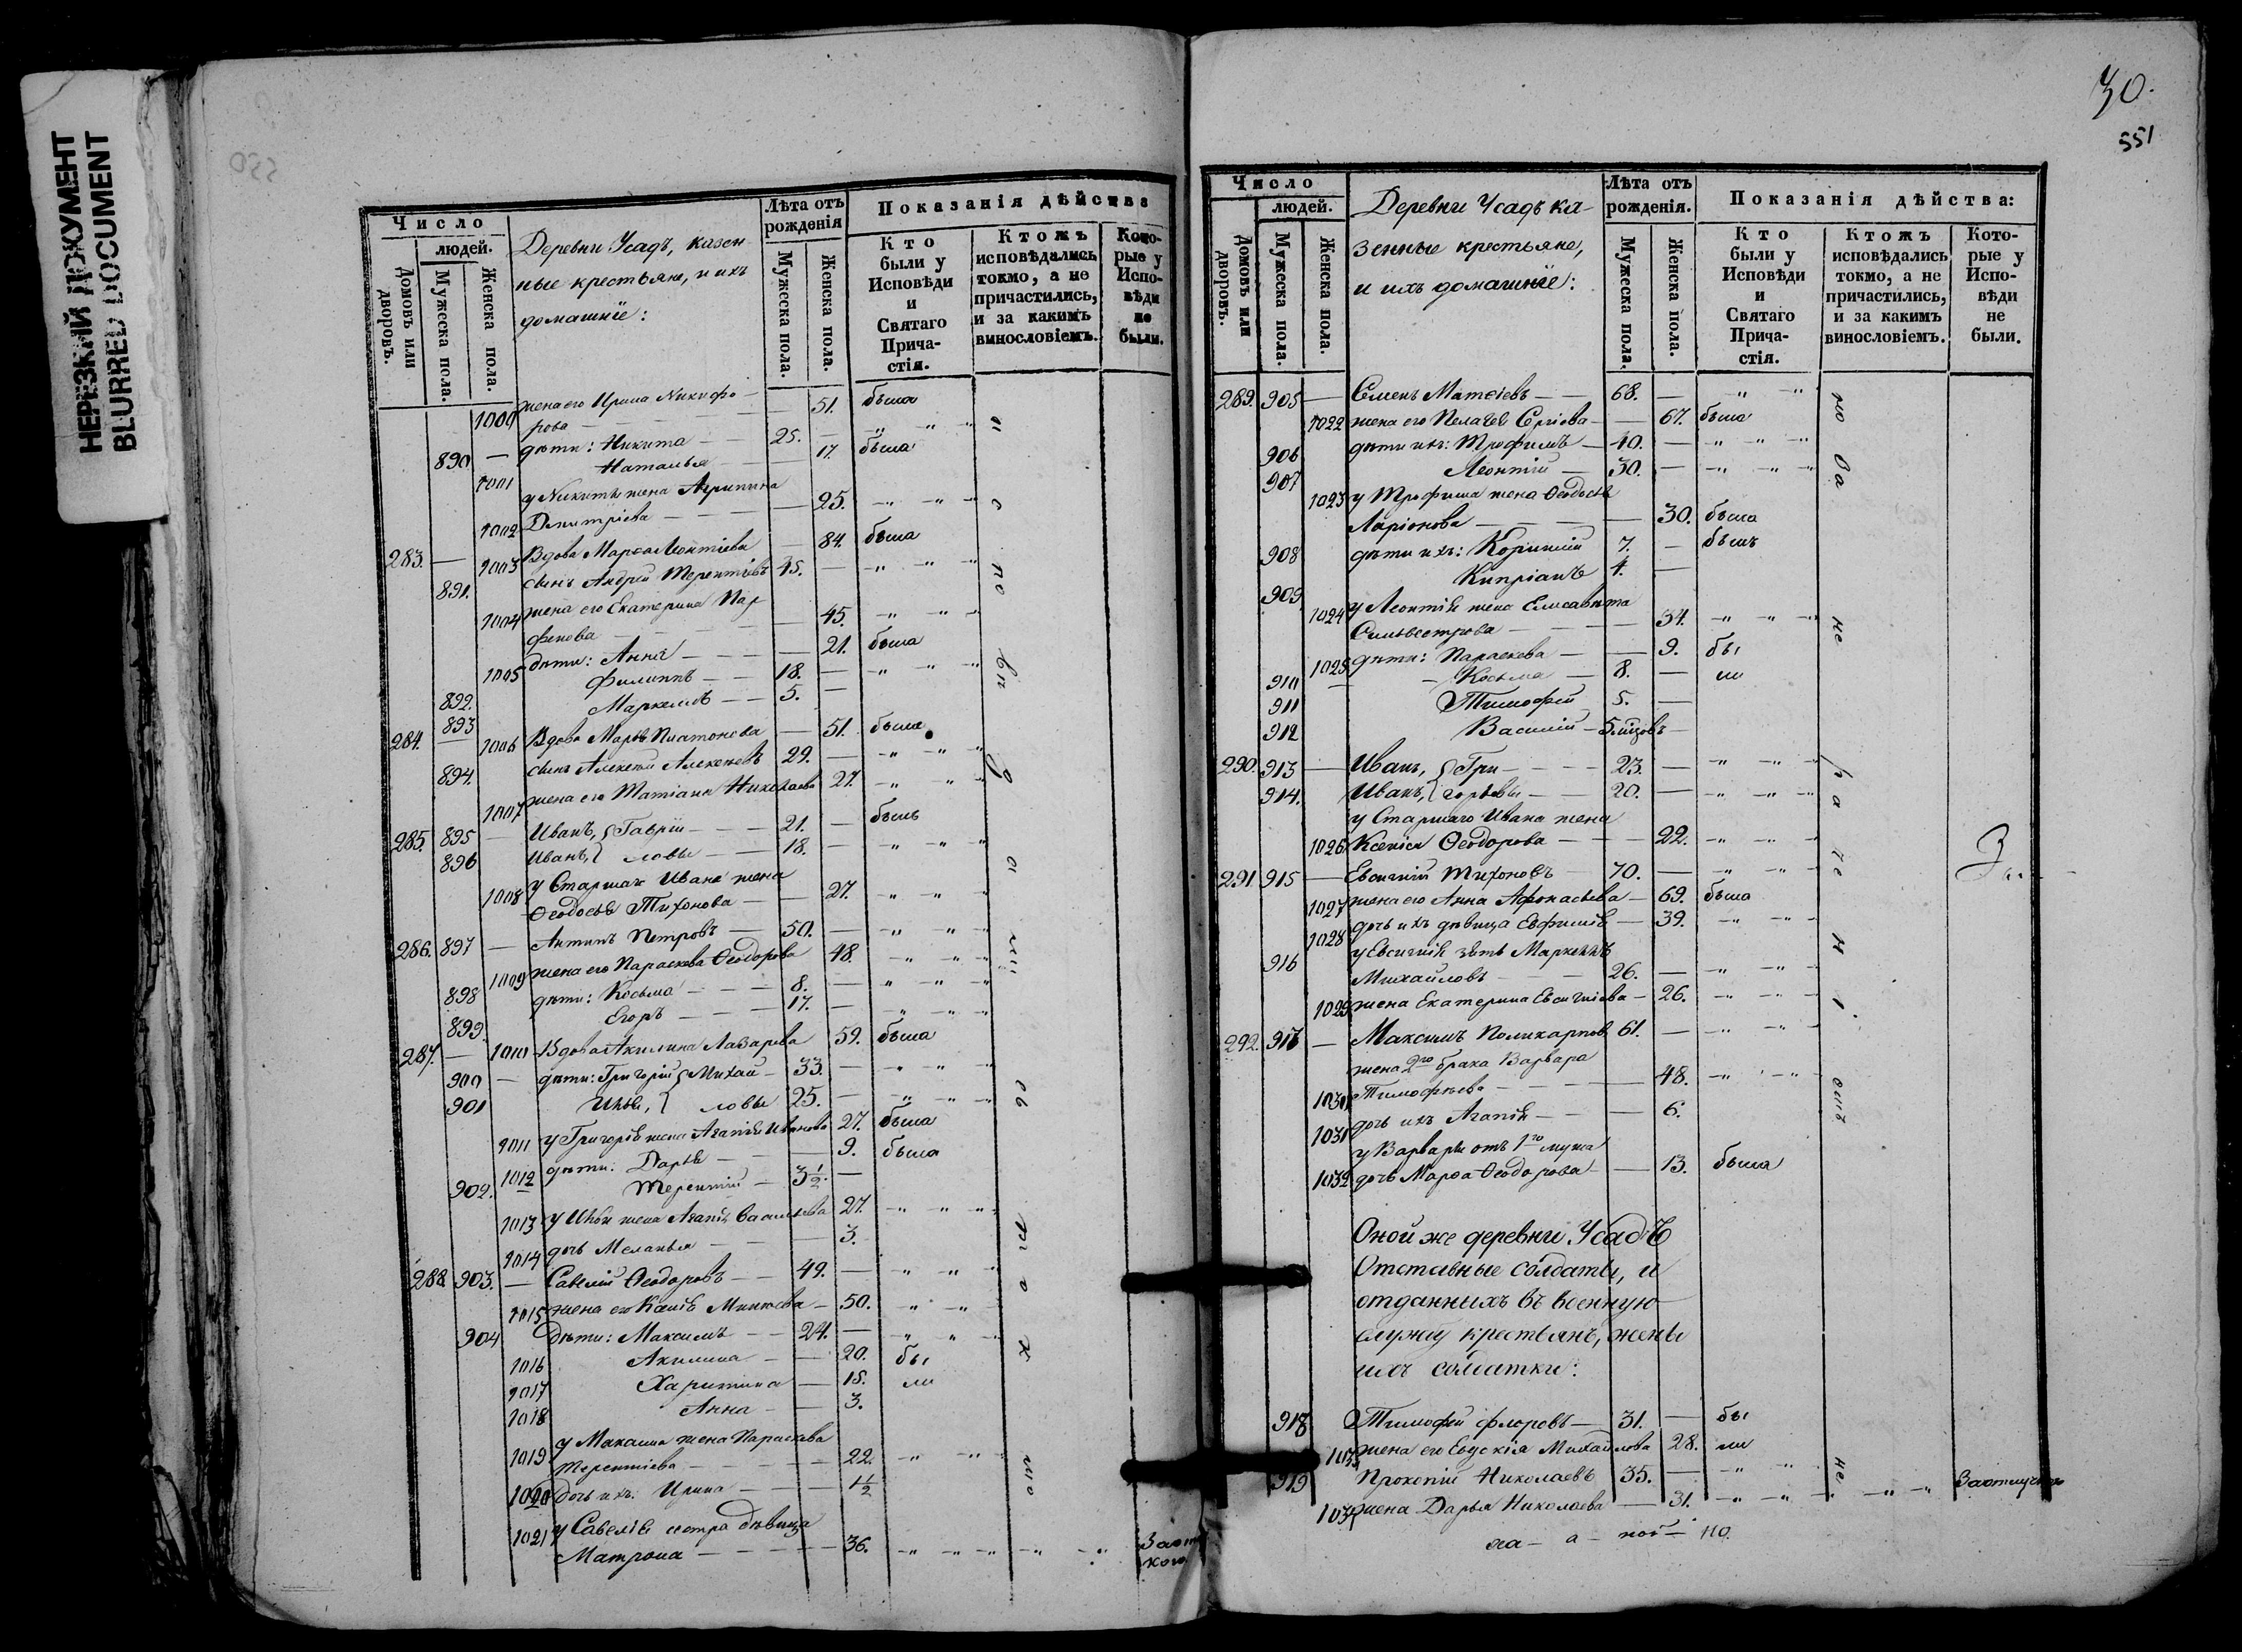 НЕРЕЗКИЙ ДОКУМЕНТ
BLURRED DOCUMENT
550
Число
людей.
Домовъ или дворовъ.
Мужеска пола.
Женска пола.
Деревни Усадъ, казен-
ные крестьяне, и ихъ
домашніе:
Лѣта отъ рожденія
Мужеска пола.
Женска пола.
Показанія дѣйства
Кто были у Исповѣди и Святаго Причастія.
Ктожъ исповѣдались токмо, а не причастились, и за какимъ винословіемъ.
Которые у Исповѣди не были.
жена его Ирина Никифо-
1000 рова — 51. была
890 — дѣти: Никита — 25. —
1001 Наталья — 17. была
у Никиты жена Агрипина
1002 Дмитріева — 25.
283. — 1003 Вдова Марѳа Леонтіева — 84. была
891. сынъ Андрей Терентіевъ 45. —
1004 жена его Екатерина Пар-
фенова — 45.
1005 дѣти: Анна — 21. была
892. Филиппъ — 18. —
893 Маркеллъ — 5. —
284. — 1006 Вдова Марья Платонова — 51. была
894. сынъ Алексей Алексеевъ 29. —
1007 жена его Татіана Николаева 27.
285. 895 — Иванъ, Гаврі- — 21. — былъ
896 Иванъ, ловы — 18. —
у Старшаго Ивана жена
1008 Ѳеодосья Тихонова — 27.
286. 897 — Антипъ Петровъ — 50. —
1009 жена его Параскева Ѳеодорова 48.
898 дѣти: Косьма — 8. —
899. Егоръ — 17. —
287. — 1010 Вдова Акилина Лазарева 59. была
900 — дѣти: Григорій Михай- 33. —
901 Илья, ловы 25. —
1011 у Григорія жена Агапія Иванова 27. была
1012 дѣти: Дарья — 9. была
902. Терентій — 3½. —
1013 у Ильи жена Агапія Васильева 27.
1014 дочь Меланья — 3.
288. 903. — Савелій Ѳеодоровъ — 49. —
1015 жена его — 50.
904 дѣти: Максимъ — 24. —
1016 Акилина — 20. бы
1017 Харитина — 15. ли
1018 Анна — 3.
у Максима жена Параскева
1019 Терентіева — 22.
1020 дочь ихъ Ирина — 1½
1021 у Савелія сестра дѣвица
Матрона — 36.
30.
551
Число
людей.
Домовъ или дворовъ.
Мужеска пола.
Женска пола.
Деревни Усадъ ка-
зенные крестьяне,
и ихъ домашніе:
Лѣта отъ рожденія.
Мужеска пола.
Женска пола.
Показанія дѣйства:
Кто были у Исповѣди и Святаго Причастія.
Ктожъ исповѣдались токмо, а не причастились, и за какимъ винословіемъ.
Которые у Исповѣди не были.
289. 905 — Семенъ Матѳіевъ — 68. —
1022 жена его Пелагея Сергіева — 67. была
906 дѣти ихъ: Трофимъ — 40. —
907 Леонтій — 30. —
1023 у Трофима жена Ѳеодосья
Ларіонова — 30. была
908 дѣти ихъ: 7. — былъ
909 Кипріанъ 4. —
1024 у Леонтія жена Елисавета
Сильвестрова — 34.
1025 дѣти: Параскева — 9. бы
910 — Косьма — 8. — ли
911 Тимофей 5. —
912 Василій — 5 мѣсяцовъ —
290. 913 — Иванъ, Гри- — 23. —
914. Иванъ, горьевы — 20. —
у Старшаго Ивана жена
1026 Ксенія Ѳеодорова — 22.
291. 915 — Евсигній Тихоновъ — 70. —
1027 жена его Анна Афонасьева — 69. была
1028 дочь ихъ дѣвица Евфимія — 39.
916 у Евсигнія зять Маркеллъ
Михайловъ — 26. —
1029 жена Екатерина Евсигніева — 26.
292. 917 — Максимъ Поликарповъ 61. —
жена 2го брака Варвара
1030 Тимофѣева — 48.
1031 дочь ихъ Агапія — 6.
у Варвары отъ 1го мужа
1032 дочь Марѳа Ѳеодорова — 13. была
Оной же деревни Усадъ
Отставные солдаты, и
отданныхъ въ военную
службу крестьянъ, жены
ихъ солдатки:
918 Тимофей Флоровъ — 31. — бы
1033 жена его Евдокія Михайлова 28. ли
919 Прокопій Николаевъ 35. —
1034 жена Дарья Николаева — 31.